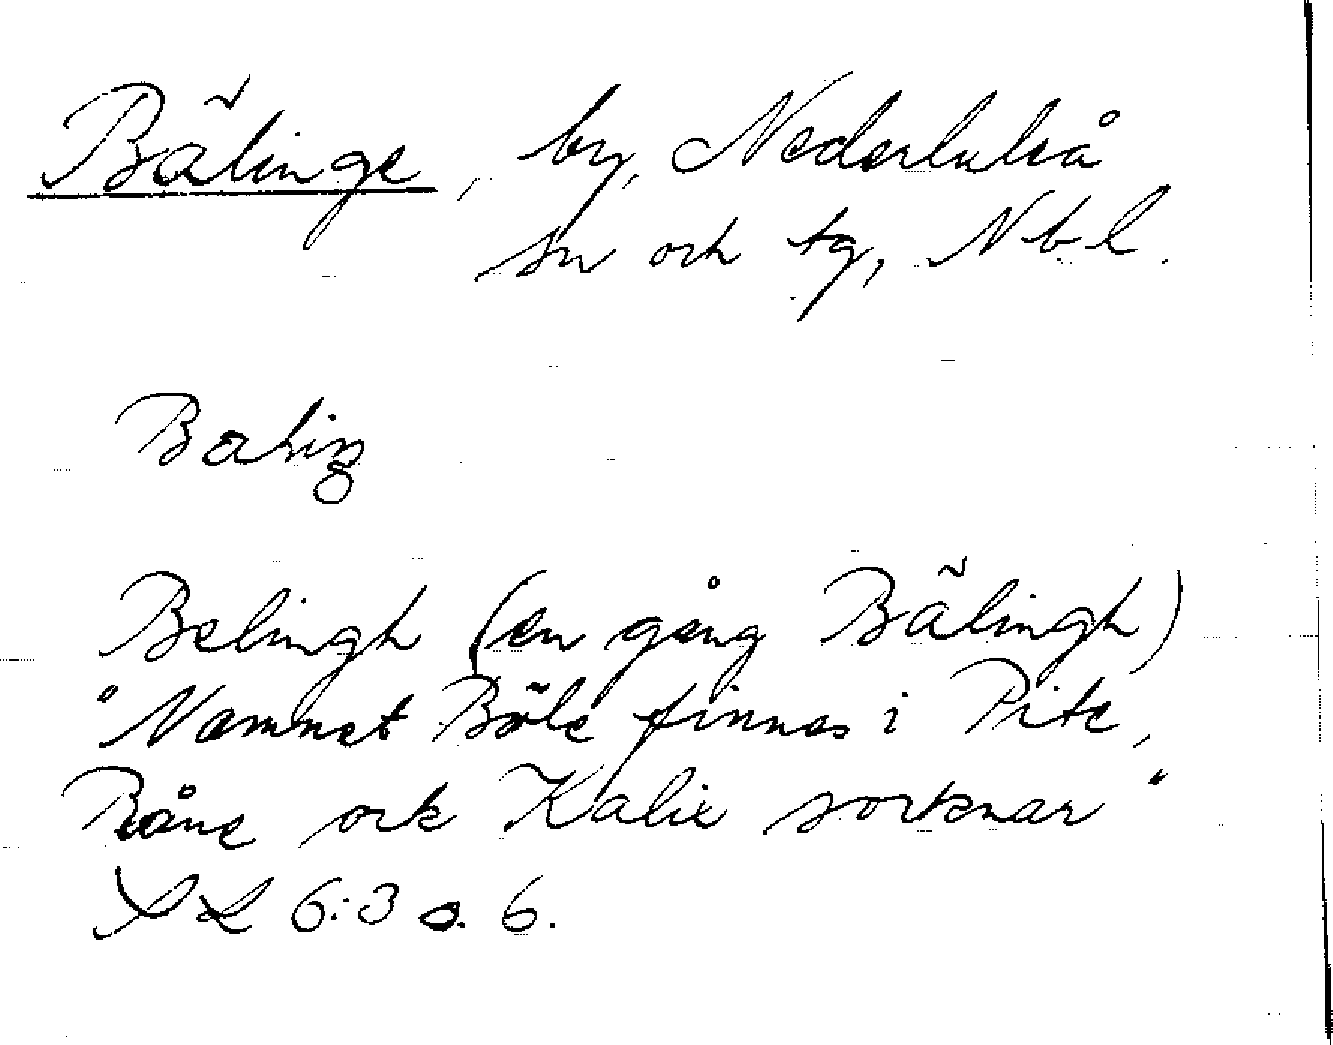 Bälinge, by, Nederluleå
sn och tg, Nbl.
Baling
Belingh (en gång Bälingh)
"Namnet Böle finnes i Pite,
Råne ock Kalix sorknar"
6:3 o. 6.